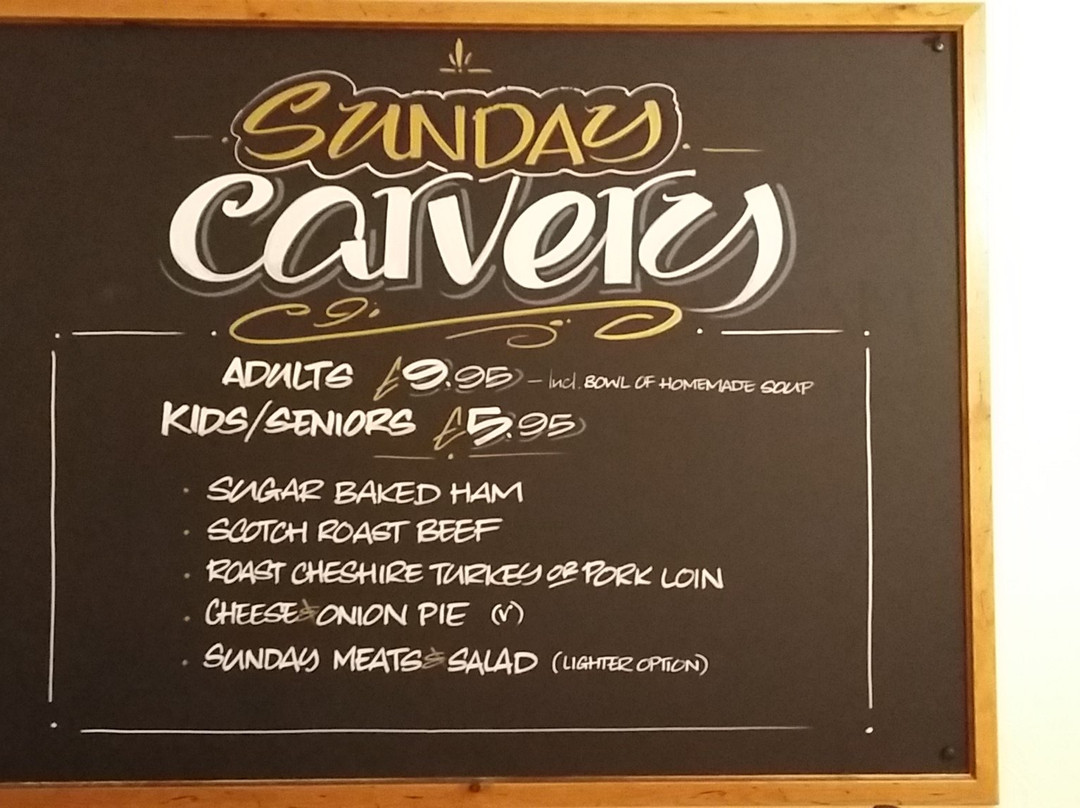 SUNDAY
Carvery
ADULTS £9.95 - Incl. BOWL OF HOMEMADE SOUP
KIDS/SENIORS £5.95
· SUGAR BAKED HAM
· SCOTCH ROAST BEEF
· ROAST CHESHIRE TURKEY OR PORK LOIN
· CHEESE & ONION PIE (V)
· SUNDAY MEATS & SALAD (LIGHTER OPTION)